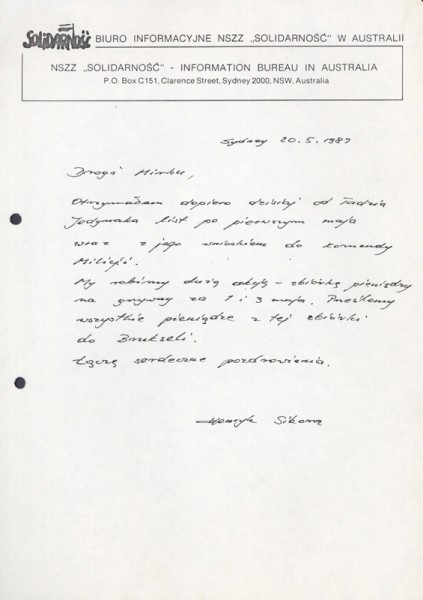 SOLIDARNOŚĆ BIURO INFORMACYJNE NSZZ „SOLIDARNOŚĆ" W AUSTRALII
NSZZ „SOLIDARNOŚĆ" - INFORMATION BUREAU IN AUSTRALIA
P.O. Box C151, Clarence Street, Sydney 2000, NSW, Australia
Sydney 20.5.1987
Drogi Mirku,
Otrzymałem dopiero dzisiaj od Tadzia
Jedynaka list po pierwszym maja
wraz z jego wnioskiem do komendy
Milicji.
My robimy dużą akcję – zbiórkę pieniędzy
na grzywny za 1 i 3 maja. Prześlemy
wszystkie pieniądze z tej zbiórki
do Brukseli.
Łączę serdeczne pozdrowienia.
Henryk Sikora